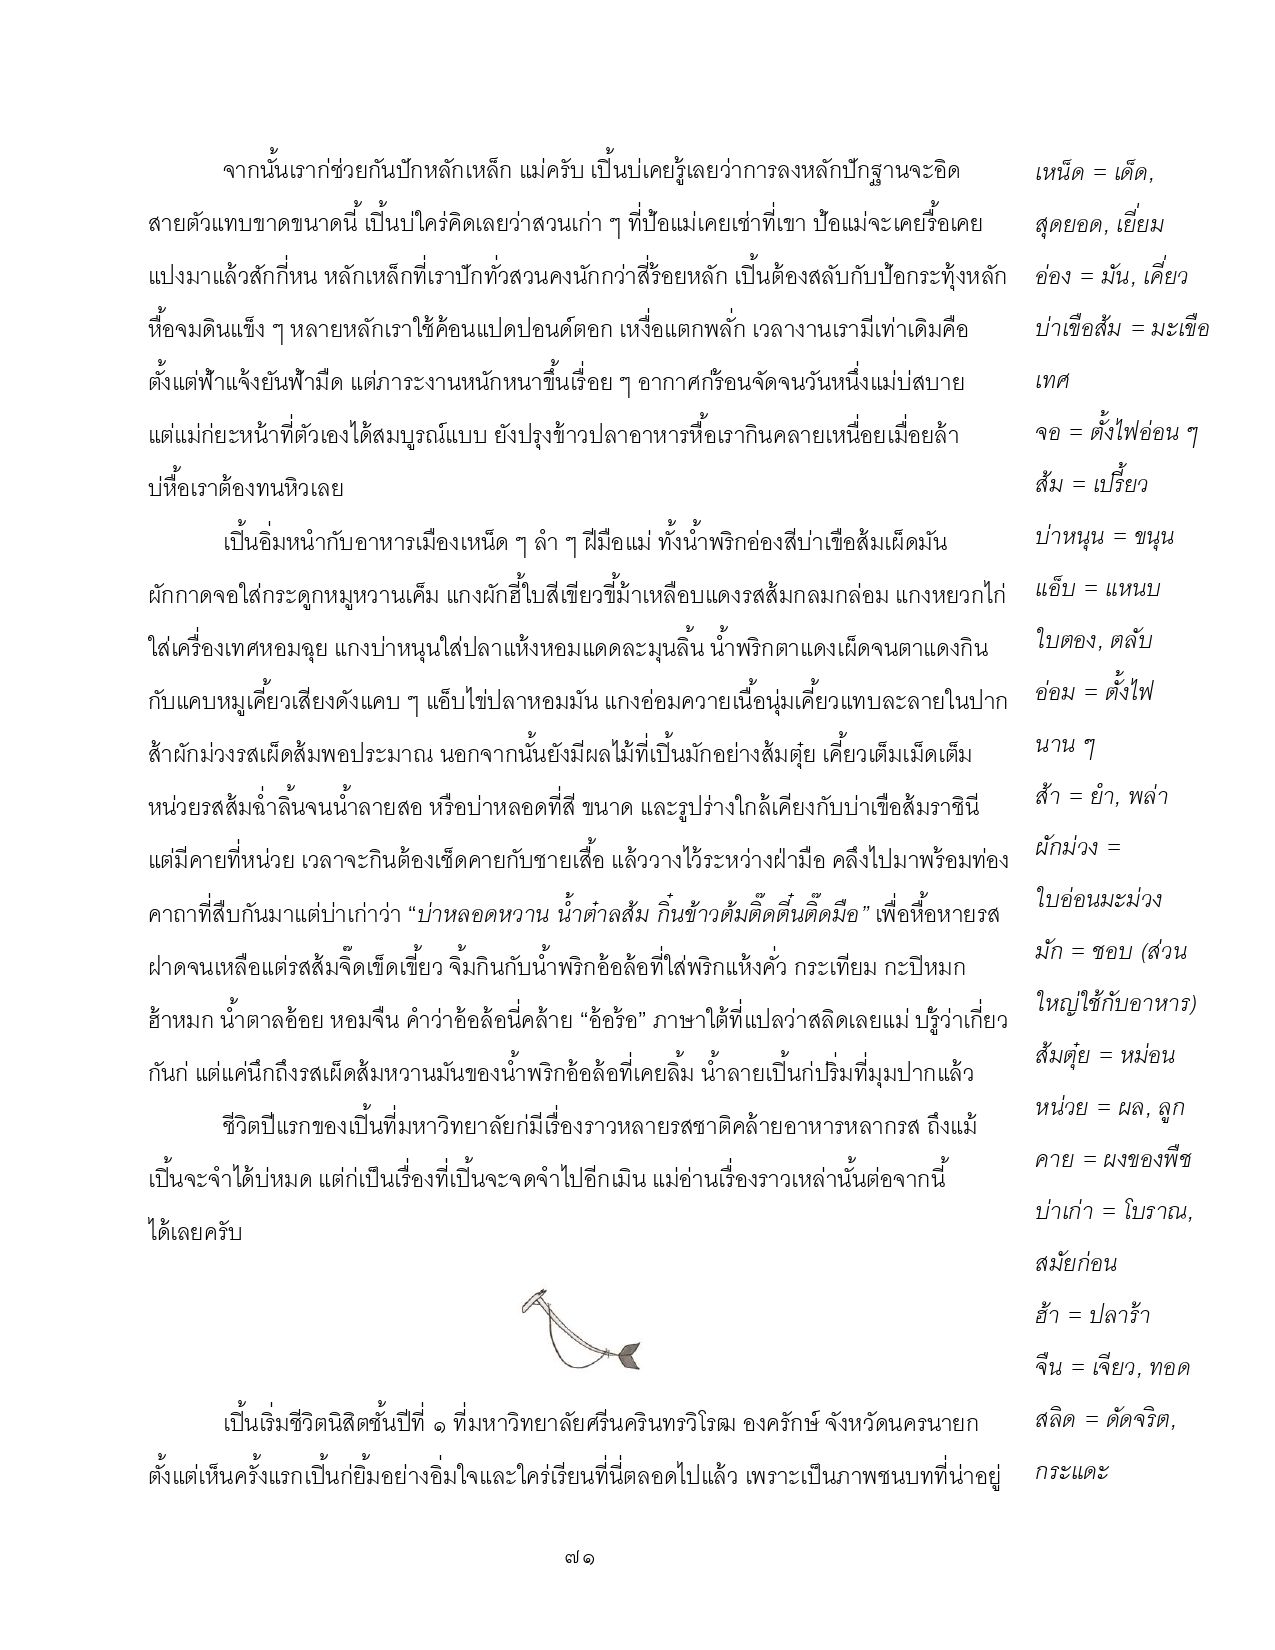 จากนั้นเราก่ช่วยกันปักหลักเหล็ก แม่ครับ เปิ้นบ่เคยรู้เลยว่าการลงหลักปักฐานจะอิด
สายตัวแทบขาดขนาดนี้ เปิ้นบ่ใคร่คิดเลยว่าสวนเก่า ๆ ที่ป้อแม่เคยเช่าที่เขา ป้อแม่จะเคยรื้อเคย
แปงมาแล้วสักกี่หน หลักเหล็กที่เราปักทั่วสวนคงนักกว่าสี่ร้อยหลัก เปิ้นต้องสลับกับป้อกระทุ้งหลัก
หื้อจมดินแข็ง ๆ หลายหลักเราใช้ค้อนแปดปอนด์ตอก เหงื่อแตกพลั่ก เวลางานเรามีเท่าเดิมคือ
ตั้งแต่ฟ้าแจ้งยันฟ้ามืด แต่ภาระงานหนักหนาขึ้นเรื่อย ๆ อากาศก่ร้อนจัดจนวันหนึ่งแม่บ่สบาย
แต่แม่ก่ยะหน้าที่ตัวเองได้สมบูรณ์แบบ ยังปรุงข้าวปลาอาหารหื้อเรากินคลายเหนื่อยเมื่อยล้า
บ่หื้อเราต้องทนหิวเลย
เปิ้นอิ่มหนำกับอาหารเมืองเหน็ด ๆ ลำ ๆ ฝีมือแม่ ทั้งน้ำพริกอ่องสีบ่าเขือส้มเผ็ดมัน
ผักกาดจอใส่กระดูกหมูหวานเค็ม แกงผักฮี้ใบสีเขียวขี้ม้าเหลือบแดงรสส้มกลมกล่อม แกงหยวกไก่
ใส่เครื่องเทศหอมฉุย แกงบ่าหนุนใส่ปลาแห้งหอมแดดละมุนลิ้น น้ำพริกตาแดงเผ็ดจนตาแดงกิน
กับแคบหมูเคี้ยวเสียงดังแคบ ๆ แอ็บไข่ปลาหอมมัน แกงอ่อมควายเนื้อนุ่มเคี้ยวแทบละลายในปาก
ส้าผักม่วงรสเผ็ดส้มพอประมาณ นอกจากนั้นยังมีผลไม้ที่เปิ้นมักอย่างส้มตุ๋ย เคี้ยวเต็มเม็ดเต็ม
หน่วยรสส้มฉ่ำลิ้นจนน้ำลายสอ หรือบ่าหลอดที่สี ขนาด และรูปร่างใกล้เคียงกับบ่าเขือส้มราชินี
แต่มีคายที่หน่วย เวลาจะกินต้องเช็ดคายกับชายเสื้อ แล้ววางไว้ระหว่างฝ่ามือ คลึงไปมาพร้อมท่อง
คาถาที่สืบกันมาแต่บ่าเก่าว่า “บ่าหลอดหวาน น้ำต๋าลส้ม กิ๋นข้าวต้มติ๊ดตี๋นติ๊ดมือ” เพื่อหื้อหายรส
ฝาดจนเหลือแต่รสส้มจิ๊ดเข็ดเขี้ยว จิ้มกินกับน้ำพริกอ้อล้อที่ใส่พริกแห้งคั่ว กระเทียม กะปิหมก
ฮ้าหมก น้ำตาลอ้อย หอมจืน คำว่าอ้อล้อนี่คล้าย “อ้อร้อ” ภาษาใต้ที่แปลว่าสลิดเลยแม่ บ่รู้ว่าเกี่ยว
กันก่ แต่แค่นึกถึงรสเผ็ดส้มหวานมันของน้ำพริกอ้อล้อที่เคยลิ้ม น้ำลายเปิ้นก่ปริ่มที่มุมปากแล้ว
ชีวิตปีแรกของเปิ้นที่มหาวิทยาลัยก่มีเรื่องราวหลายรสชาติคล้ายอาหารหลากรส ถึงแม้
เปิ้นจะจำได้บ่หมด แต่ก่เป็นเรื่องที่เปิ้นจะจดจำไปอีกเมิน แม่อ่านเรื่องราวเหล่านั้นต่อจากนี้
ได้เลยครับ
เปิ้นเริ่มชีวิตนิสิตชั้นปีที่ ๑ ที่มหาวิทยาลัยศรีนครินทรวิโรฒ องครักษ์ จังหวัดนครนายก
ตั้งแต่เห็นครั้งแรกเปิ้นก่ยิ้มอย่างอิ่มใจและใคร่เรียนที่นี่ตลอดไปแล้ว เพราะเป็นภาพชนบทที่น่าอยู่
เหน็ด = เด็ด,
สุดยอด, เยี่ยม
อ่อง = มัน, เคี่ยว
บ่าเขือส้ม = มะเขือ
เทศ
จอ = ตั้งไฟอ่อน ๆ
ส้ม = เปรี้ยว
บ่าหนุน = ขนุน
แอ็บ = แหนบ
ใบตอง, ตลับ
อ่อม = ตั้งไฟ
นาน ๆ
ส้า = ยำ, พล่า
ผักม่วง =
ใบอ่อนมะม่วง
มัก = ชอบ (ส่วน
ใหญ่ใช้กับอาหาร)
ส้มตุ๋ย = หม่อน
หน่วย = ผล, ลูก
คาย = ผงของพืช
บ่าเก่า = โบราณ,
สมัยก่อน
ฮ้า = ปลาร้า
จืน = เจียว, ทอด
สลิด = ดัดจริต,
กระแดะ
๗๑